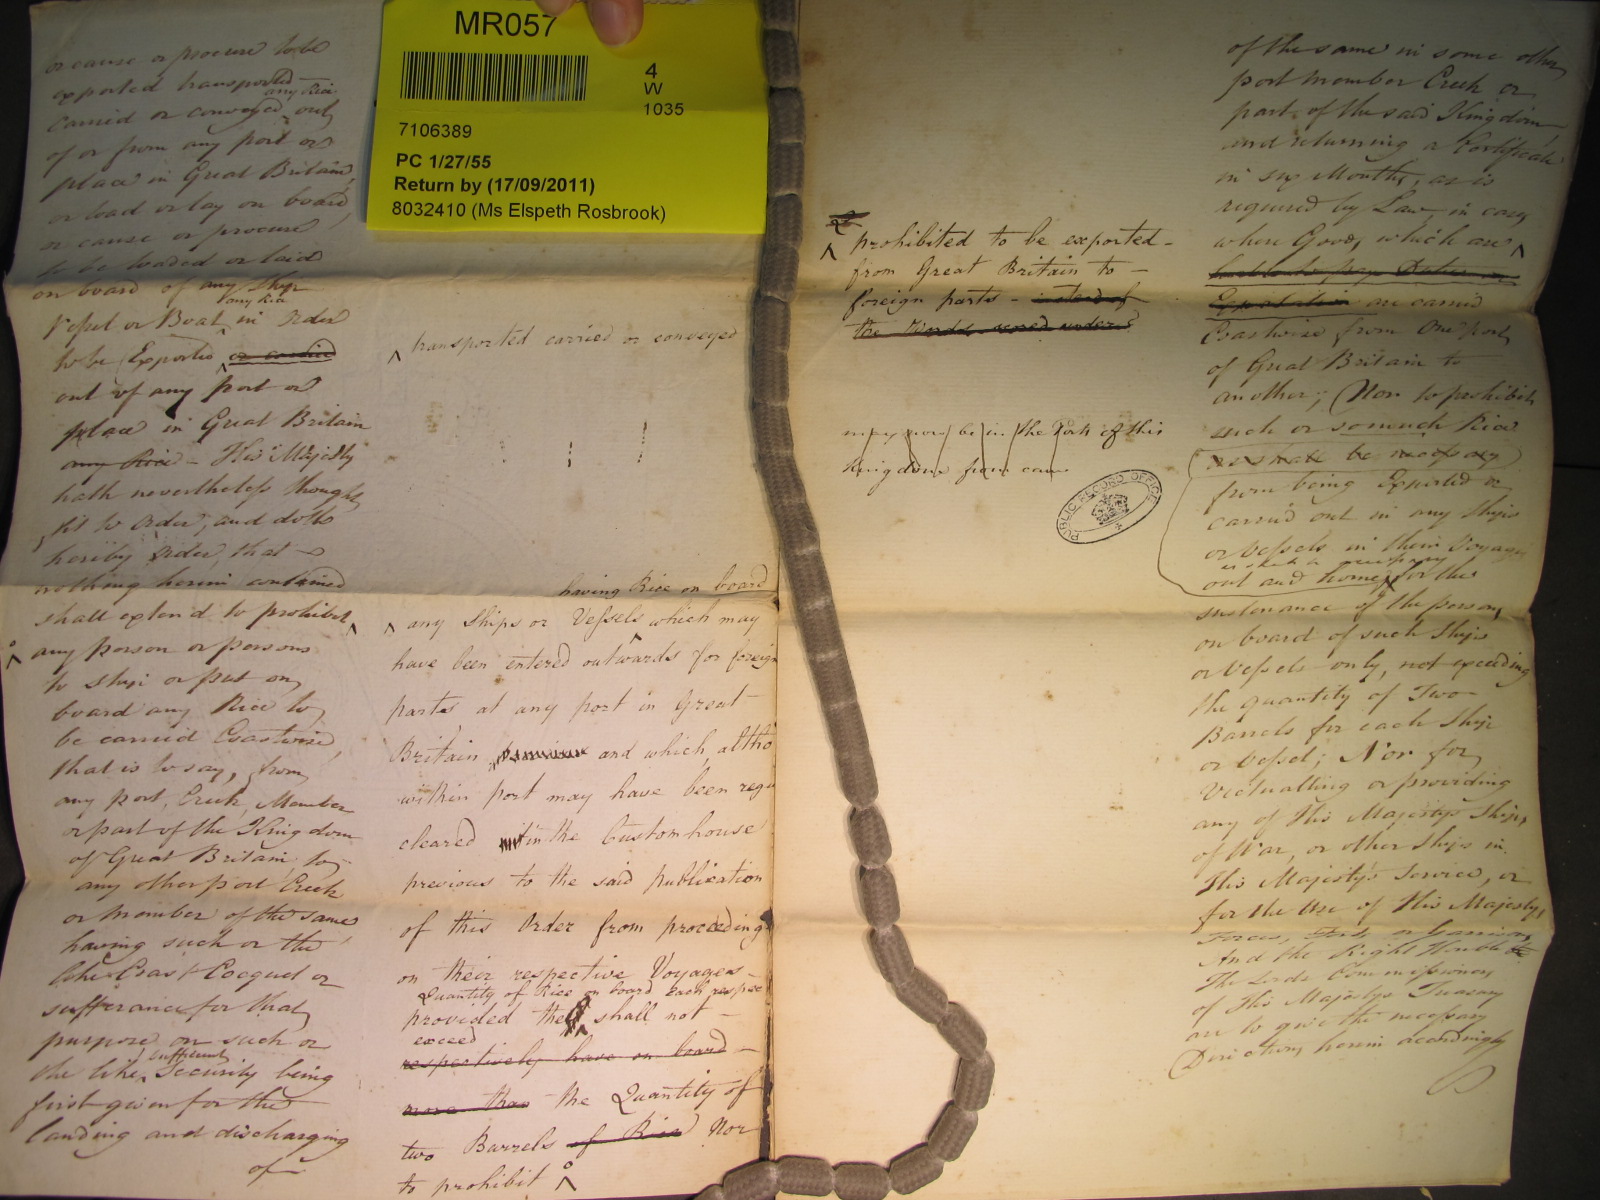 or cause or procure to be
exported transported
any Rice
carried or conveyed out
of or from any port or
place in Great Britain,
or load or lay on board,
or cause or procure
to be loaded or laid
on board of any Ship
any Rice
Vessel or Boat in Order
to be Exported or carried
out of any port or
place in Great Britain
any Rice - His Majesty
hath nevertheless thought
fit to Order, and doth
hereby Order, that
nothing herein contained
shall extend to prohibit
any person or persons
to Ship or put on
board any Rice to
be carried Coastwise,
that is to say, from
any port, Creek, Member
or part of the Kingdom
of Great Britain to
any other port Creek
or Member of the same
having such or the
like Coast Cocquet or
sufferance for that
purpose on such or
sufficient
the like Security being
first given for the
landing and discharging
of
MR057
4
W
1035
7106389
PC 1/27/55
Return by (17/09/2011)
8032410 (Ms Elspeth Rosbrook)
transported carried or conveyed
having Rice on board
any Ships or Vessels which may
have been entered outwards for foreign
parts at any port in Great
Britain and which, altho
within port may have been regu
cleared in the Customhouse
previous to the said publication
of this Order from proceeding
on their respective Voyages
Quantity of Rice on board each respec
provided the shall not
exceed
respectively have on board
more than the Quantity of
two Barrels of Rice Nor
to prohibit
prohibited to be exported
from Great Britain to
foreign parts - instead of
the Words under
may now be in the Ports of this
Kingdom from
PUBLIC RECORD OFFICE
of the same in some other
port Member Creek or
part of the said Kingdom,
and returning a Certificate
in six Months, as is
required by Law, in case,
where Goods, which are
liable to pay Duties on
Exportation are carried
Coastwise from One port
of Great Britain to
another; Nor to prohibit
such or so much Rice
as shall be necessary
from being Exported or
carried out in any Ships
or Vessels in their Voyages
as shall be necessary
out and home for the
sustenance of the persons
on board of such Ships
or Vessels only, not exceeding
the quantity of Two
Barrels for each Ship
or Vessel; Nor for
Victualling or providing
any of His Majesty's Ships
of War, or other Ships in
His Majesty's Service, or
for the Use of His Majesty's
Forces, Forts or Garrisons
And the Right Honble
The Lords Commissioners
of His Majesty's Treasury
are to give the necessary
Directions herein accordingly